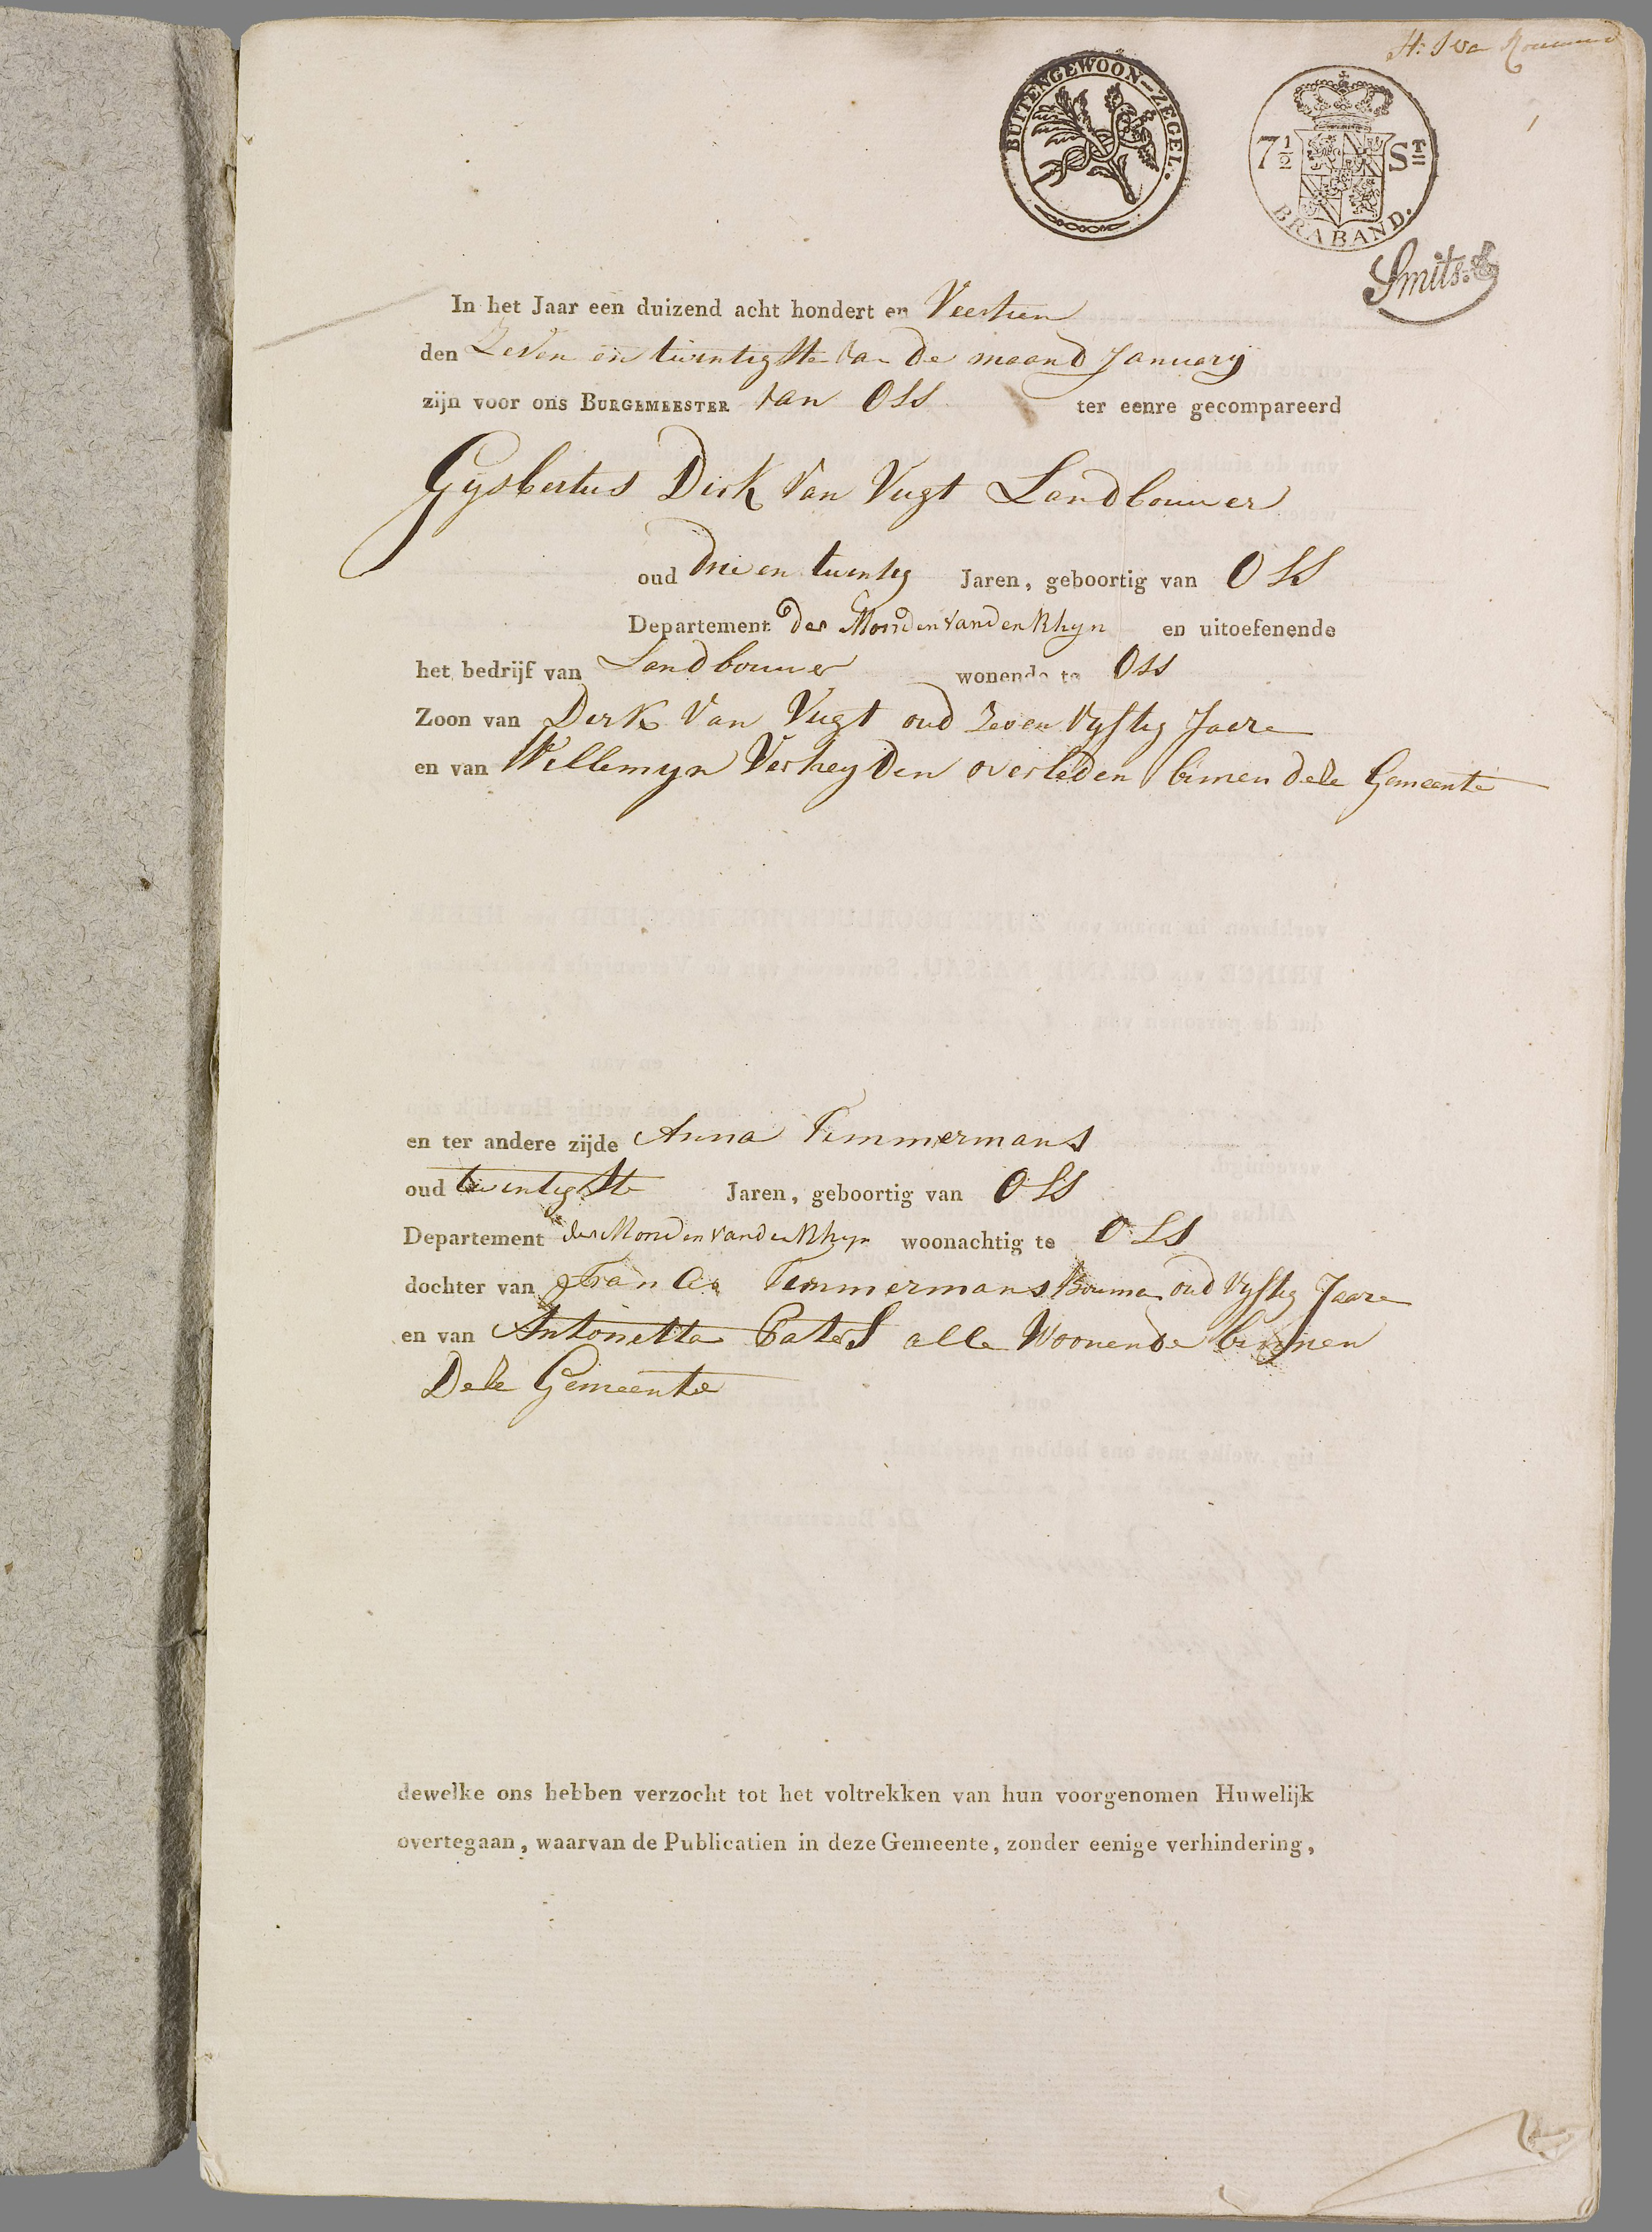 BUITENGEWOON-ZEGEL.
7½ ST
BRABAND.
Smits.
In het Jaar een duizend acht hondert en Veertien
den Zeven en twintigste van de maand January
zijn voor ons BURGEMEESTER van Oss ter eenre gecompareerd
Gysbertus Dirk van Vugt Landbouwer
oud drie en twintig Jaren, geboortig van Oss
Departement der Monden van den Rhyn en uitoefenende
het bedrijf van Landbouwer wonende te Oss
Zoon van Derk van Vugt oud Zeven Vyftig Jaere
en van Willemyn Verheyden overleden binnen deze Gemeente
en ter andere zijde Anna Timmermans
oud twintigste Jaren, geboortig van Oss
Departement der Monden van de Rhyn woonachtig te Oss
dochter van Francis Timmermans Bouman oud Vyftig Jaere
en van Antonetta Paters alle Woonende binnen
Deze Gemeente
dewelke ons hebben verzocht tot het voltrekken van hun voorgenomen Huwelijk
overtegaan, waarvan de Publicatien in deze Gemeente, zonder eenige verhindering,